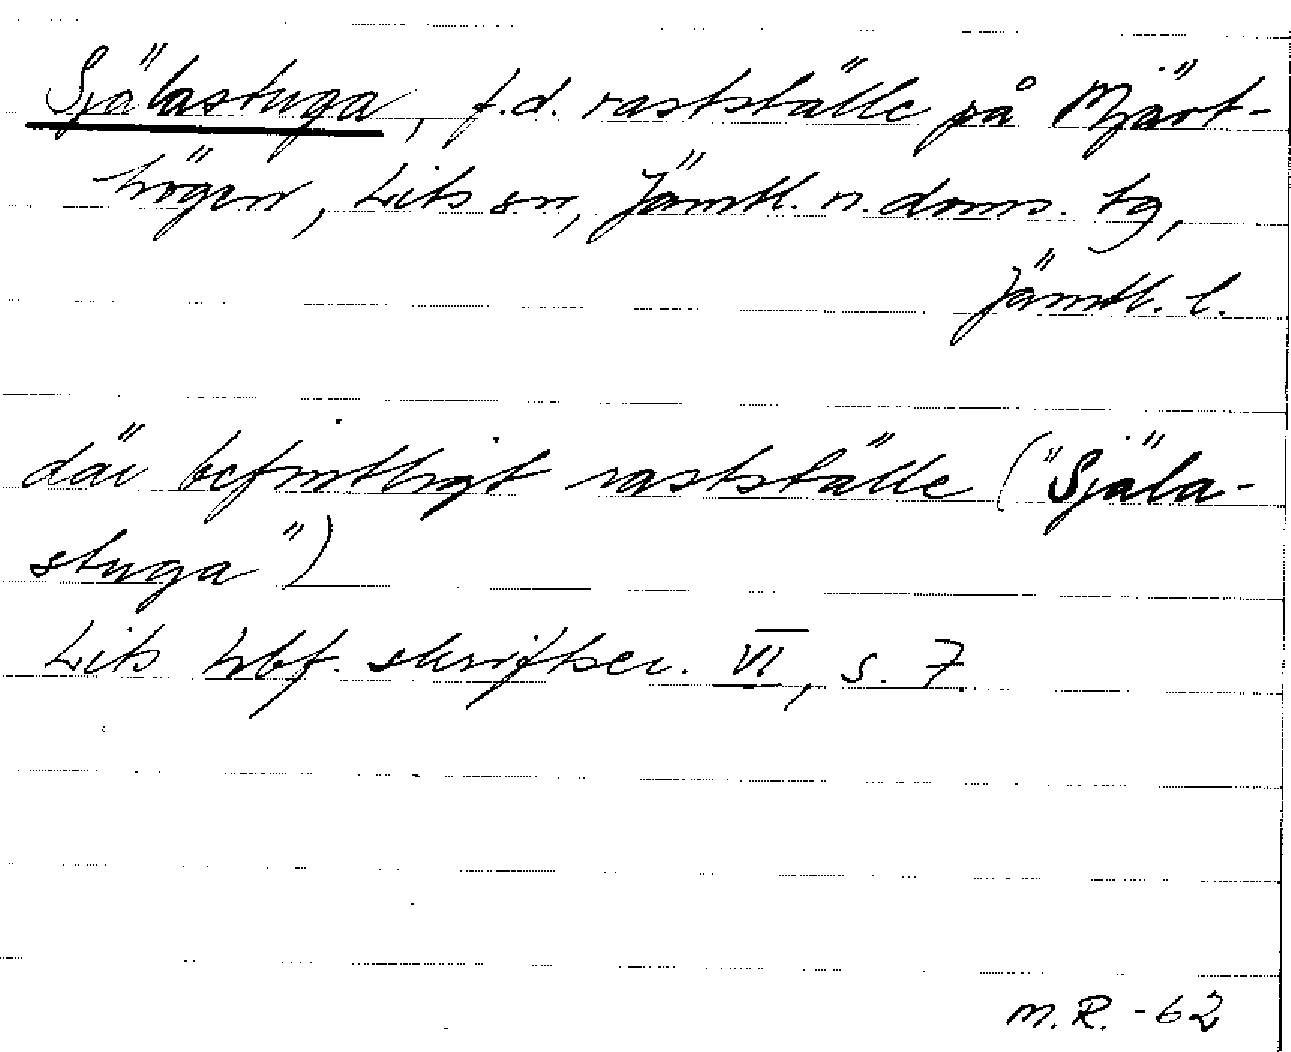 Själastuga, f.d. rastställe på Mjärt-
högen, Lits sn, Jämtl. n. doms. tg,
Jämtl. l.
där befintligt rastställe ("Själa-
stuga")
Lits hbf. skriftser. VI, s. 7
M.R. -62